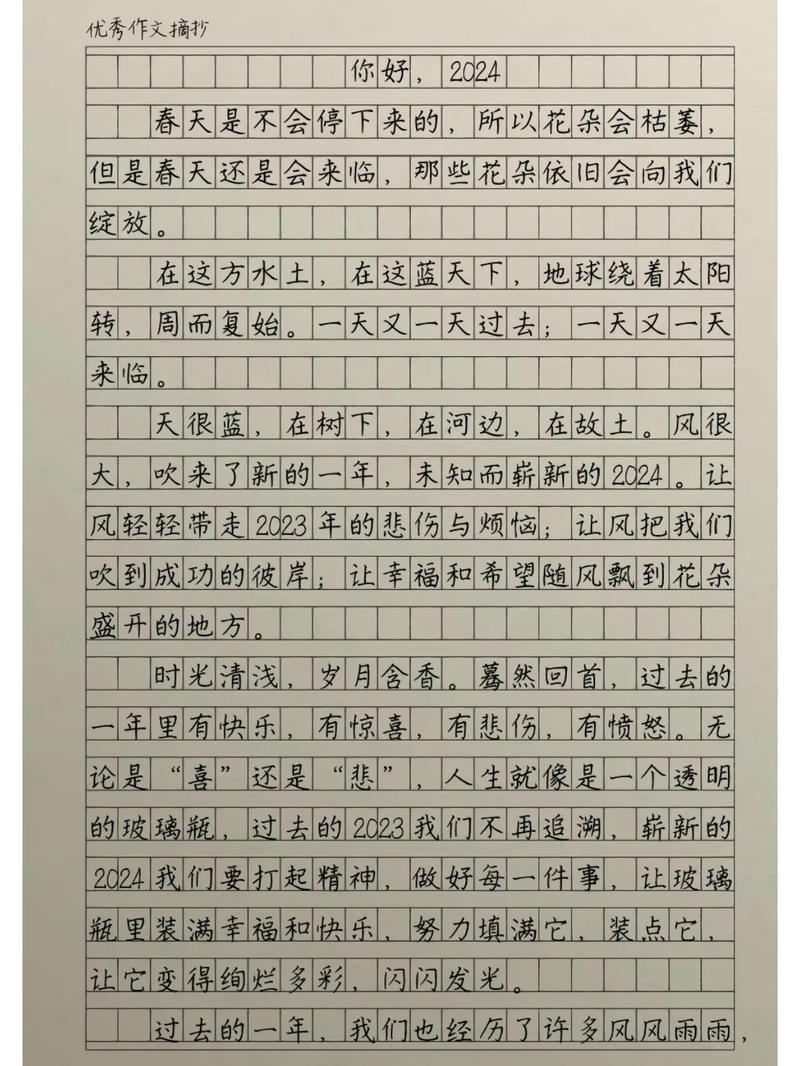 优秀作文摘抄
你好，2024
春天是不会停下来的，所以花朵会枯萎，
但是春天还是会来临，那些花朵依旧会向我们
绽放。
在这方水土，在这蓝天下，地球绕着太阳
转，周而复始。一天又一天过去；一天又一天
来临。
天很蓝，在树下，在河边，在故土。风很
大，吹来了新的一年，未知而崭新的2024。让
风轻轻带走2023年的悲伤与烦恼；让风把我们
吹到成功的彼岸；让幸福和希望随风飘到花朵
盛开的地方。
时光清浅，岁月含香。蓦然回首，过去的
一年里有快乐，有惊喜，有悲伤，有愤怒。无
论是“喜”还是“悲”，人生就像是一个透明
的玻璃瓶，过去的2023我们不再追溯，崭新的
2024我们要打起精神，做好每一件事，让玻璃
瓶里装满幸福和快乐，努力填满它，装点它，
让它变得绚烂多彩，闪闪发光。
过去的一年，我们也经历了许多风风雨雨，